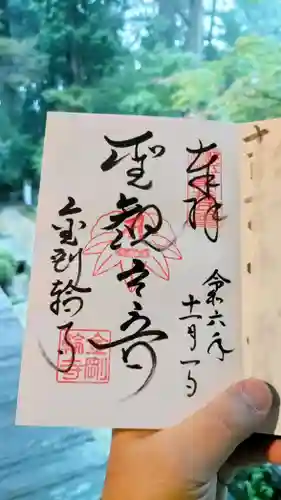 奉拝
令六年
十一月一日
聖観世音
金剛輪寺
金剛
輪寺